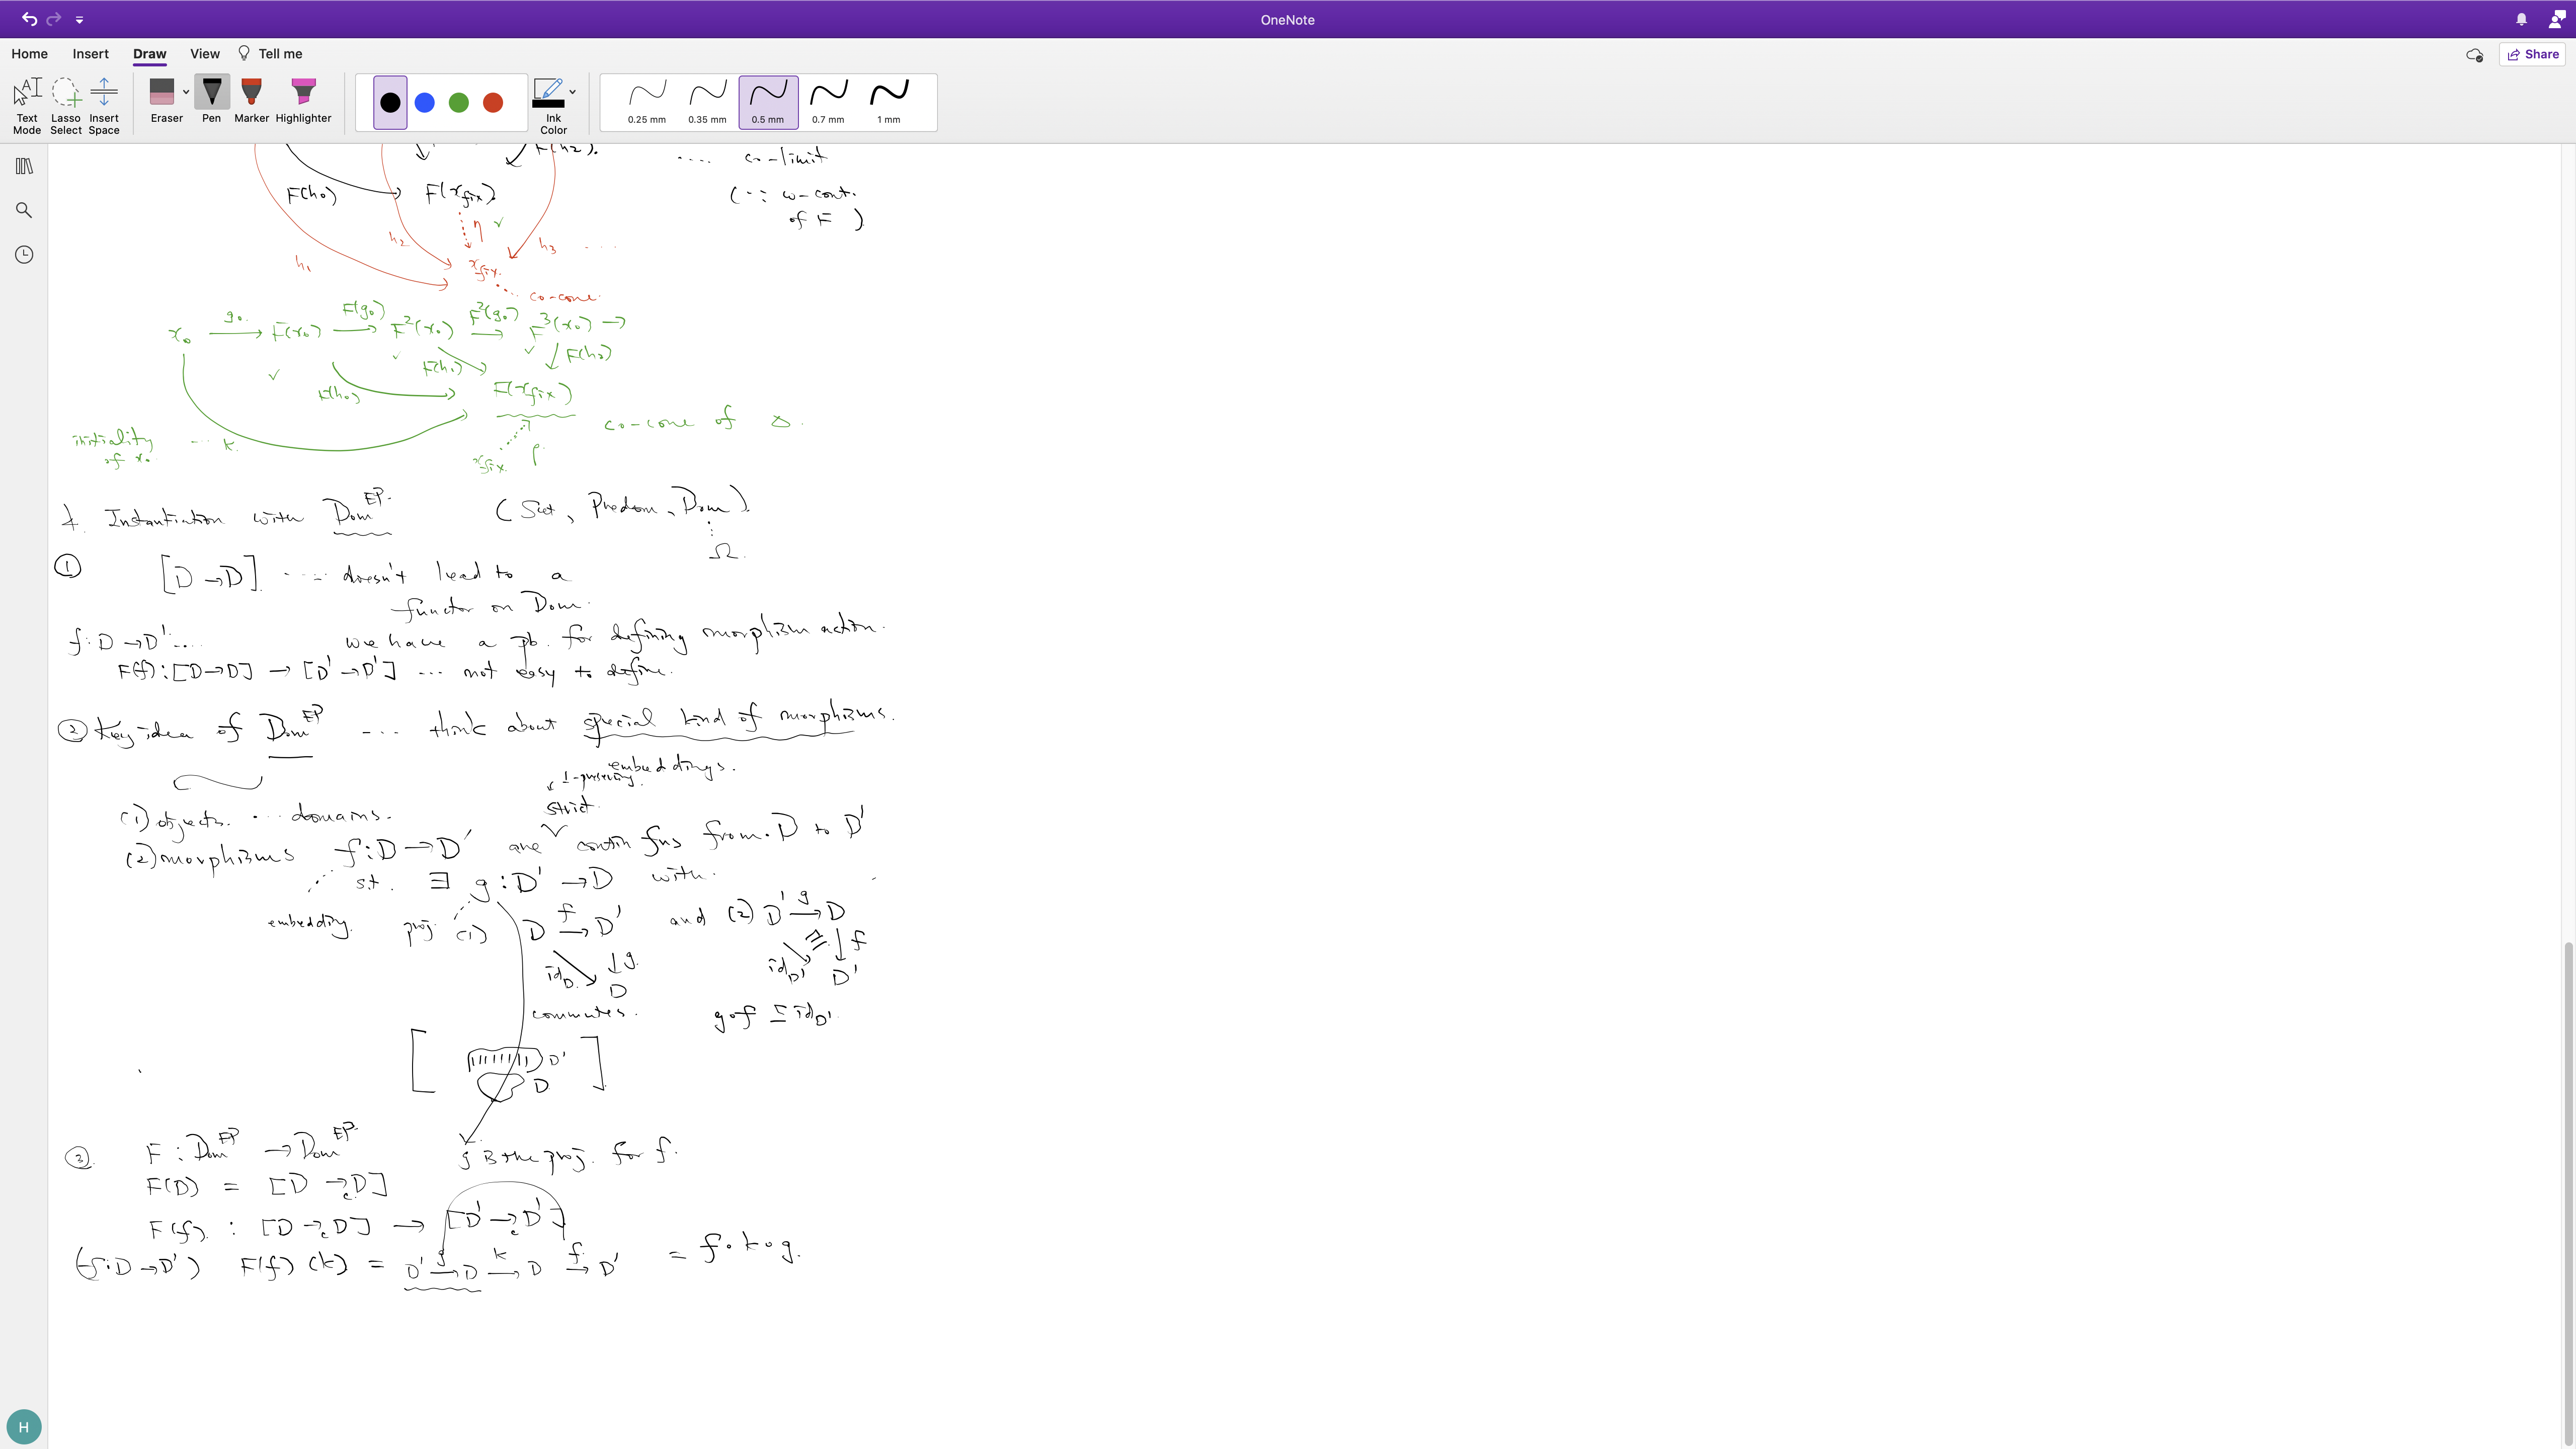 OneNote
Home Insert Draw View Tell me
Share
Text Mode
Lasso Select
Insert Space
Eraser
Pen
Marker
Highlighter
Ink Color
0.25 mm
0.35 mm
0.5 mm
0.7 mm
1 mm
F(h₂).
.... co-limit
F(h₀) F(x_fix)
(∵ ω-cont. of F)
η ✓
h₁ h₂ h₃ ....
x_fix.
... co-cone.
x₀ --g₀--> F(x₀) --F(g₀)--> F²(x₀) --F²(g₀)--> F³(x₀) →
F(h₀) F(h₁) F(h₂)
F(x_fix)
co-cone of Δ.
initiality of x₀ ... k.
x_fix. ρ
4. Instantiation with Dom^EP. (Set, Predom, Dom).
Ω.
① [D → D] .... doesn't lead to a
functor on Dom.
f: D → D' .... we have a pb. for defining morphism action.
F(f): [D→D] → [D'→D'] ... not easy to define.
② Key idea of Dom^EP .... think about special kind of morphisms.
embeddings.
⊥-preserving.
strict.
(1) objects. ... domains.
(2) morphisms f: D → D' are contin fns from D to D'
s.t. ∃ g: D' → D with.
embedding. proj. (1) D --f--> D' and (2) D' --g--> D
id_D. ↓g. id_D' ⊒ ↓f
D D'
commutes. g∘f ⊑ id_D'.
[ D' D ]
③. F: Dom^EP → Dom^EP. g is the proj. for f.
F(D) = [D →_c D]
F(f) : [D →_c D] → [D' →_c D']
(f: D → D') F(f)(k) = D' --g--> D --k--> D --f--> D' = f∘k∘g.
H